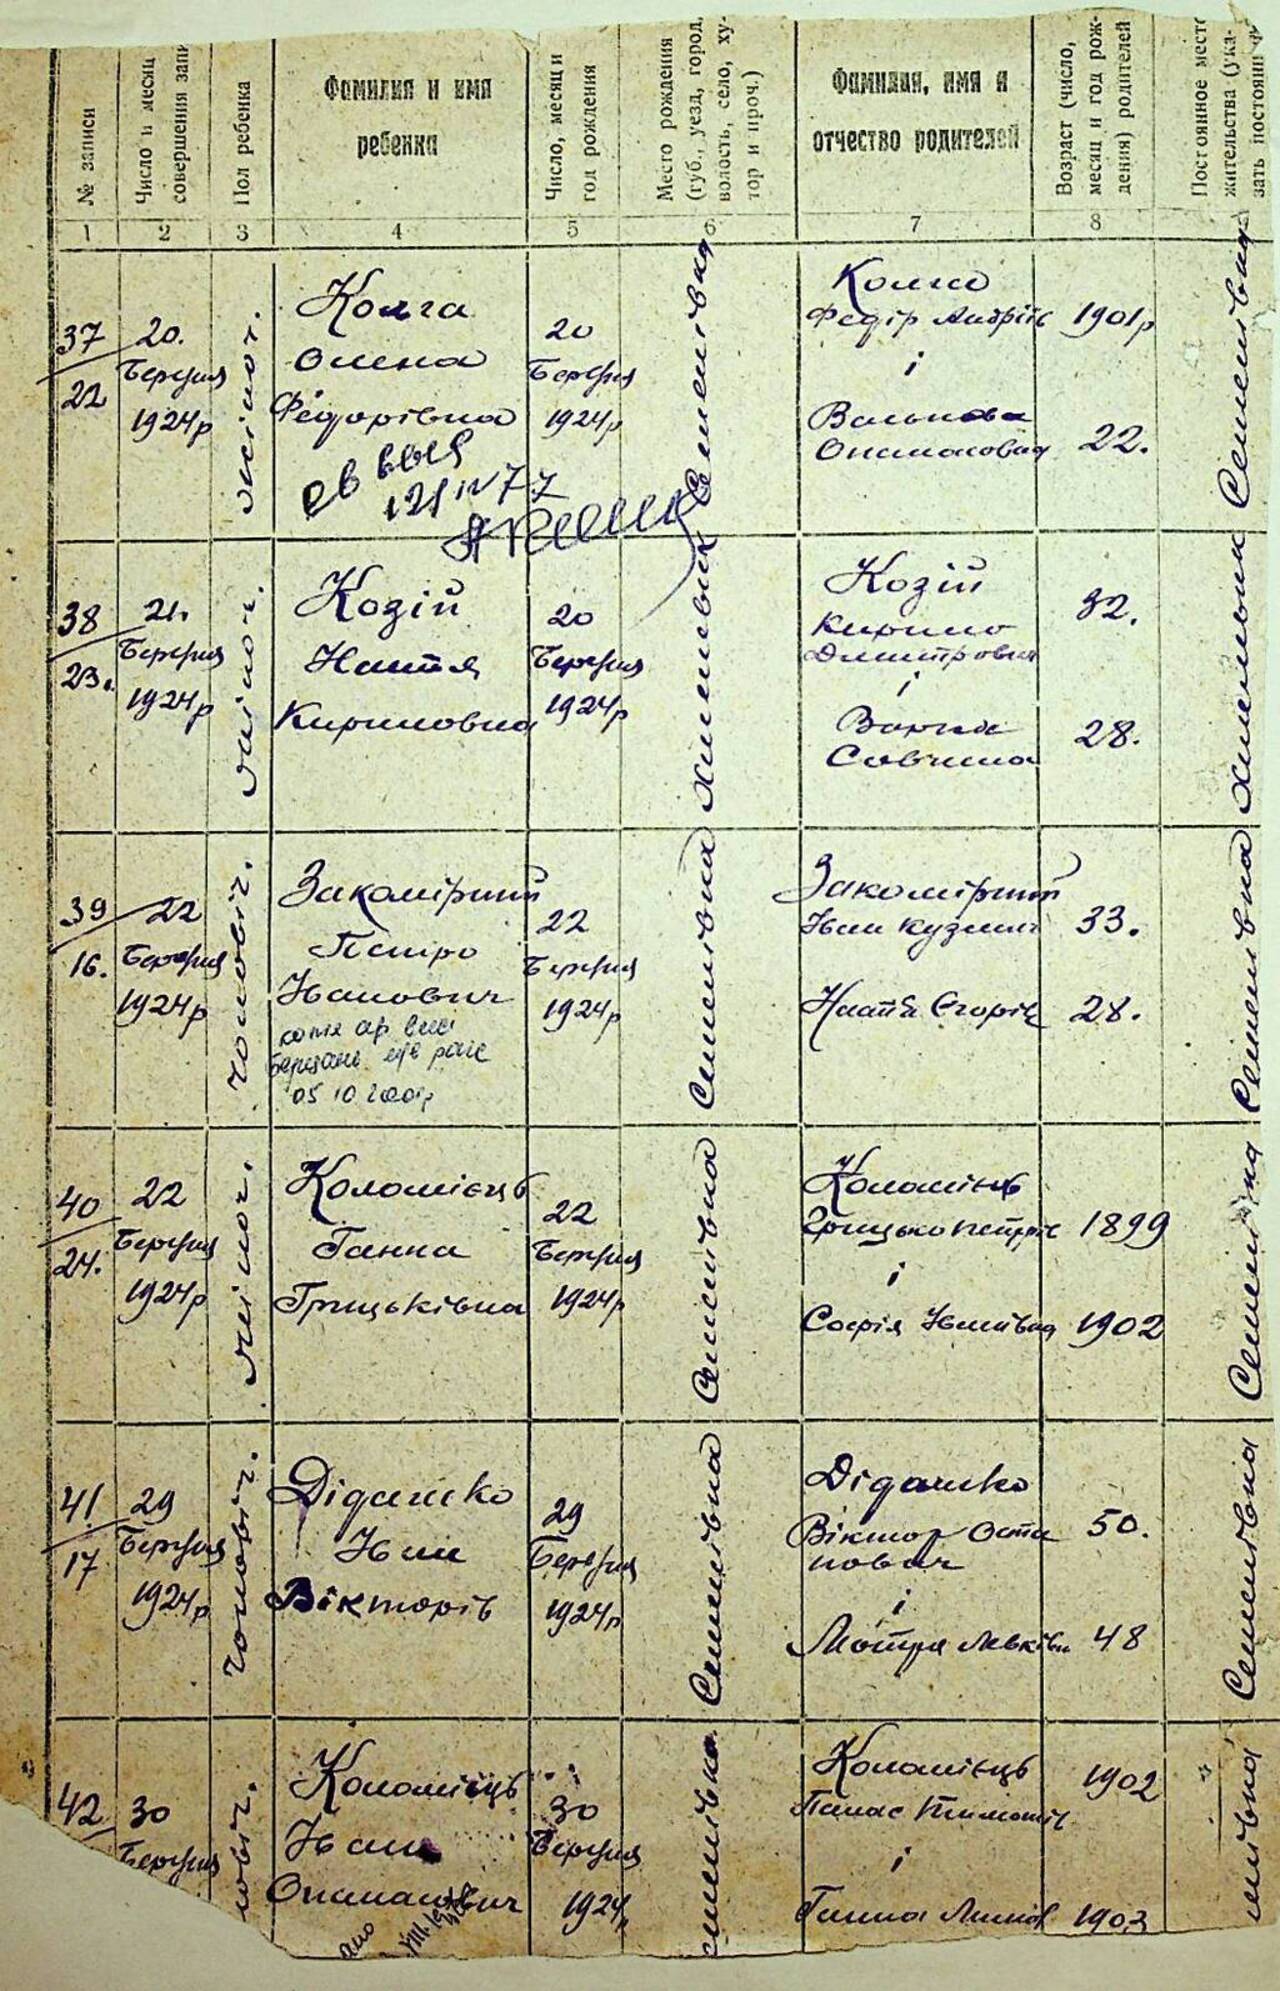 № записи
Число и месяц
совершения запи
Пол ребенка
Фамилия и имя
ребенка
Число, месяц и
год рождения
Место рождения
(губ., уезд, город,
волость, село, ху-
тор и проч.)
Фамилия, имя и
отчество родителей
Возраст (число,
месяц и год рож-
дения) родителей
Постоянное мест
жительства (ука-
зать постоянн
1
2
3
4
5
6
7
8
37
22
20.
Березня
1924р
жіноч.
Колга
Олена
Федорівна
20
Березня
1924р
Семенівка
Колга
Федір Андріїв
і
Опанасовна
1901р
22.
Семенівка
38
23.
21.
Березня
1924р
жіноч.
Козій
Настя
Кириловна
20
Березня
1924р
Хмельвик
Козій
Кирило
Дмитрович
і
Варка
Савишна
32.
28.
Хмельвик
39
16.
22
Березня
1924р
чоловіч.
Закомірний
Петро
Іванович
05 10 200
22
Березня
1924р
Семенівка
Закомірний
Іван Кузмич
Настя Єгорів
33.
28.
Семенівка
40
24.
22
Березня
1924р
жіноч.
Коломієць
Ганна
Грицьківна
22
Березня
1924р
Семенівка
Коломієць
Грицько Петрів
і
Софія Іванівна
1899
1902
Семенівка
41
17
29
Березня
1924р
чоловіч.
Дідашко
Іван
Вікторів
29
Березня
1924р
Семенівка
Дідашко
Віктор Оста
пович
і
Мотря Левківн
50.
48
Семенівка
42
30
Березня
ловіч.
Коломієць
Іван
Опанасович
30
Березня
1924р
менівка
Коломієць
Панас Тимошів
і
Ганна
1902
1903
енівка